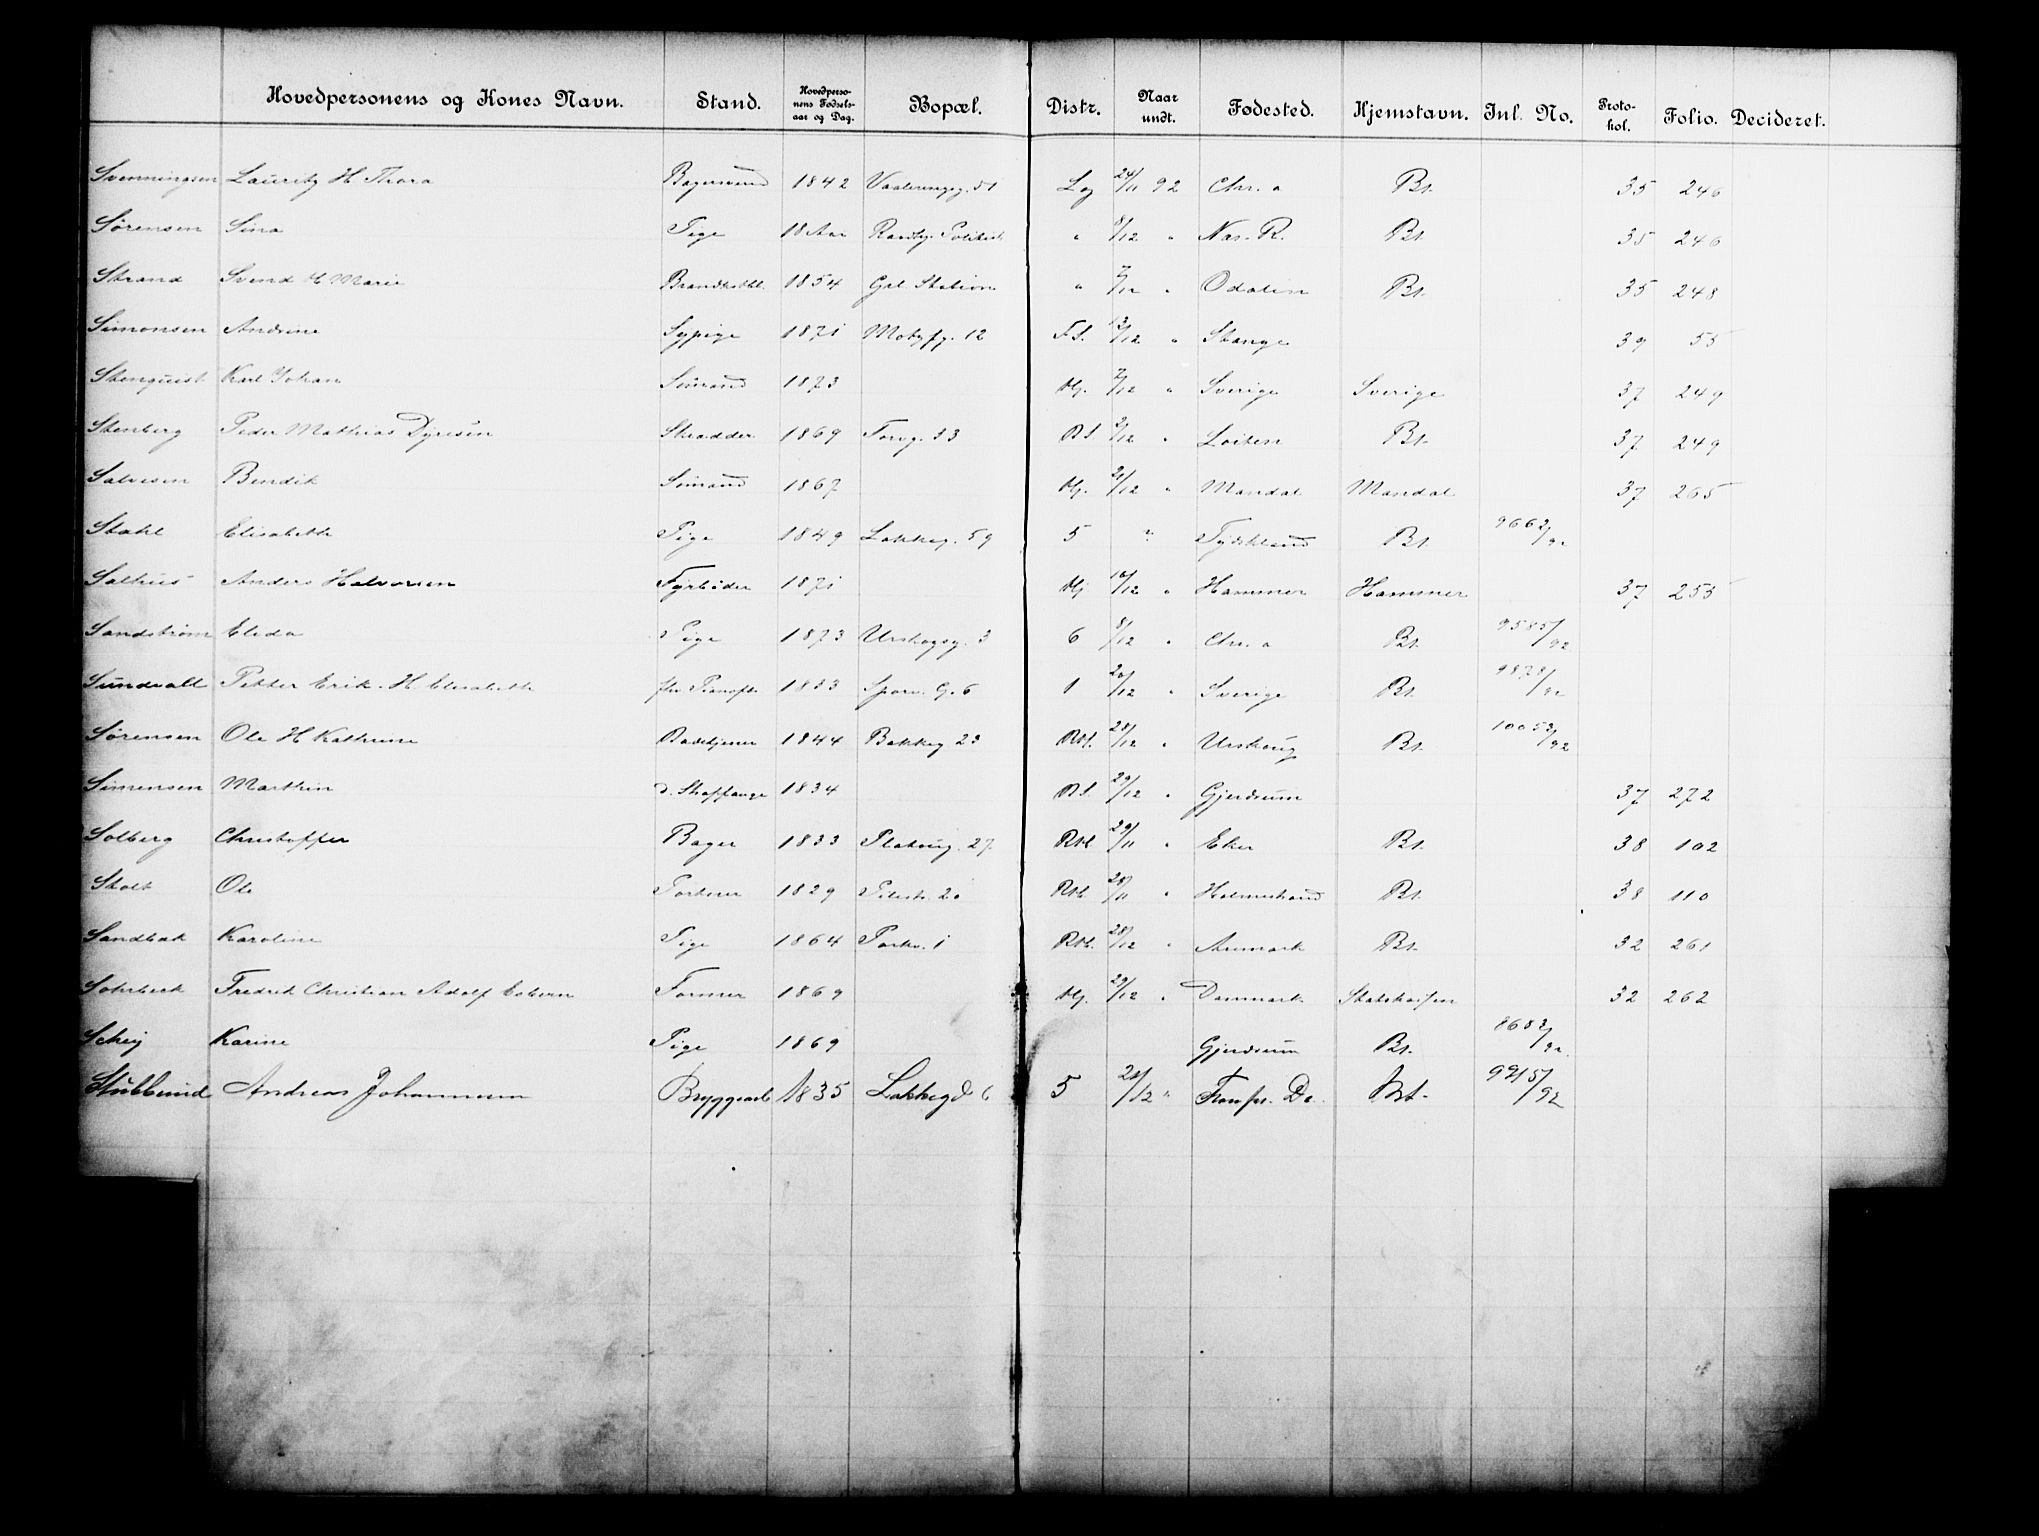 Hovedpersonens og Kones Navn. Stand. Hovedpersonens Fødselsaar og Dag. Bopæl. Distr. Naar undt. Fødested. Hjemstavn. Inl. No. Protokol. Folio. Decideret.
Svenningsen Lauritz H. Thora Bagersvend 1842 Vaalerengg. 51 Lg 24/11 92 Chr.a Bt. 35 246
Sørensen Sina Pige 18 Aar " 8/12 " Nas. R. Bt. 35 246
Strand Svend H Marie 1854 Grl. Station " " Odalen Bt. 35 248
Simonsen Andrine Sypige 1871 Motzfg. 12 F.S. 12/12 " Stange 39 55
Stenquist Karl Johan Sømand 1873 Hj. 2/12 " Sverige Sverige 37 249
Stenberg Peder Mathias Dyresen Skrædder 1869 Torvg. 33 2/12 " Løiten Bt. 37 249
Salvesen Bendik Sømand 1867 Hj. 21/12 " Mandal Mandal 37 265
Stahl Elisabeth Pige 1849 Lakkeg. 59 5 " Tydskland Bt. 9662/92
Salhus Anders Halvorsen Fyrbøder 1871 Hj 10/12 " Hammer Hammer 37 255
Sandstrøm Elida Pige 1873 Urskogsg. 3 6 8/12 " Chr.a Bt. 9585/92
Sundvall Petter Erik. H. Elisabeth 1833 Sporv. G. 6 1 20/12 " Sverige Bt. 9878/92
Sørensen Ole H Kathrine Badetjener 1844 Bakkeg 23 Rtl. 28/12 " Urskoug Bt. 10053/92
Simensen Marthin d. Straffange 1834 29/12 " Gjerdrum 37 272
Solberg Christoffer Bager 1833 Platoug. 27 Rtl 29/11 " Eker Bt. 38 102
Stolt Ole 1829 Pilestr. 20 Rtl. 28/11 " Holmestrand Bt. 38 110
Sandbak Karoline Pige 1864 Parkv. 1 Rtl. 28/12 " Aremark Bt. 32 261
Fredrik Christian Adolf Esbern Former 1869 Hj. 29/12 " Danmark 32 262
Schey Karine Pige 1869 Gjerdrum Bt. 8682/92
Stubberud Andreas Johannesen Bryggearb 1835 Lakkegd 6 5 21/12 " Bt. 9915/92